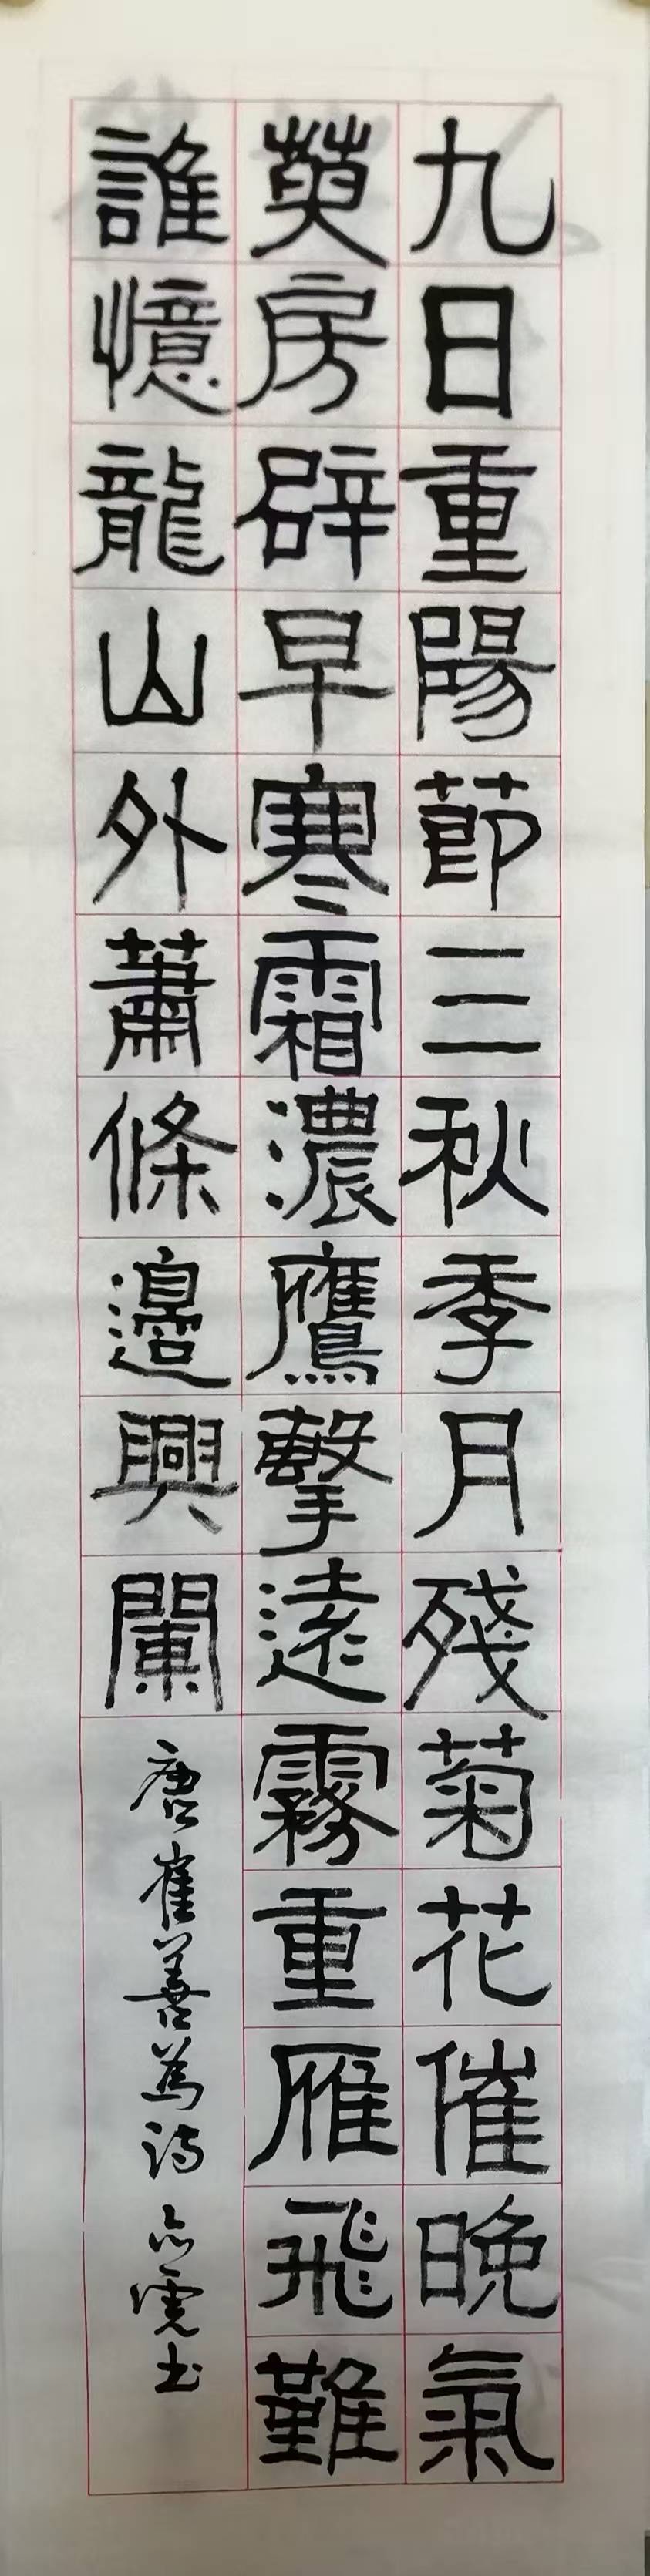 九日重陽節三秋季月殘菊花催晚氣
萸房辟早寒霜濃鷹擊遠霧重雁飛難
誰憶龍山外蕭條邊興闌
唐崔善為詩 亦书